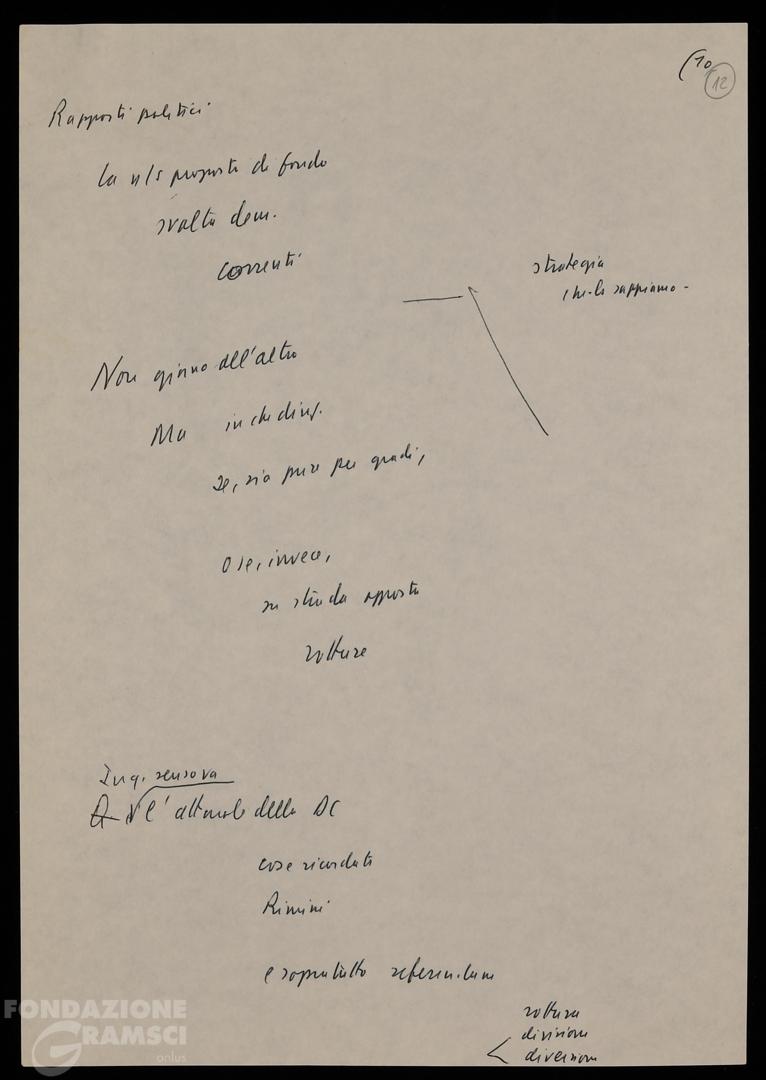 (10
12
Rapporti politici
la n/s proposta di fondo
svolta dem.
correnti
strategia
che lo sappiamo -
Non giorno all'altro
Ma in che direz.
se, sia pure per gradi,
O se, invece,
su strada opposta
rotture
In q. senso va
v l'attuale della DC
cose ricordate
Rimini
e soprattutto referendum
rottura
divisione
diversione
FONDAZIONE
GRAMSCI
onlus